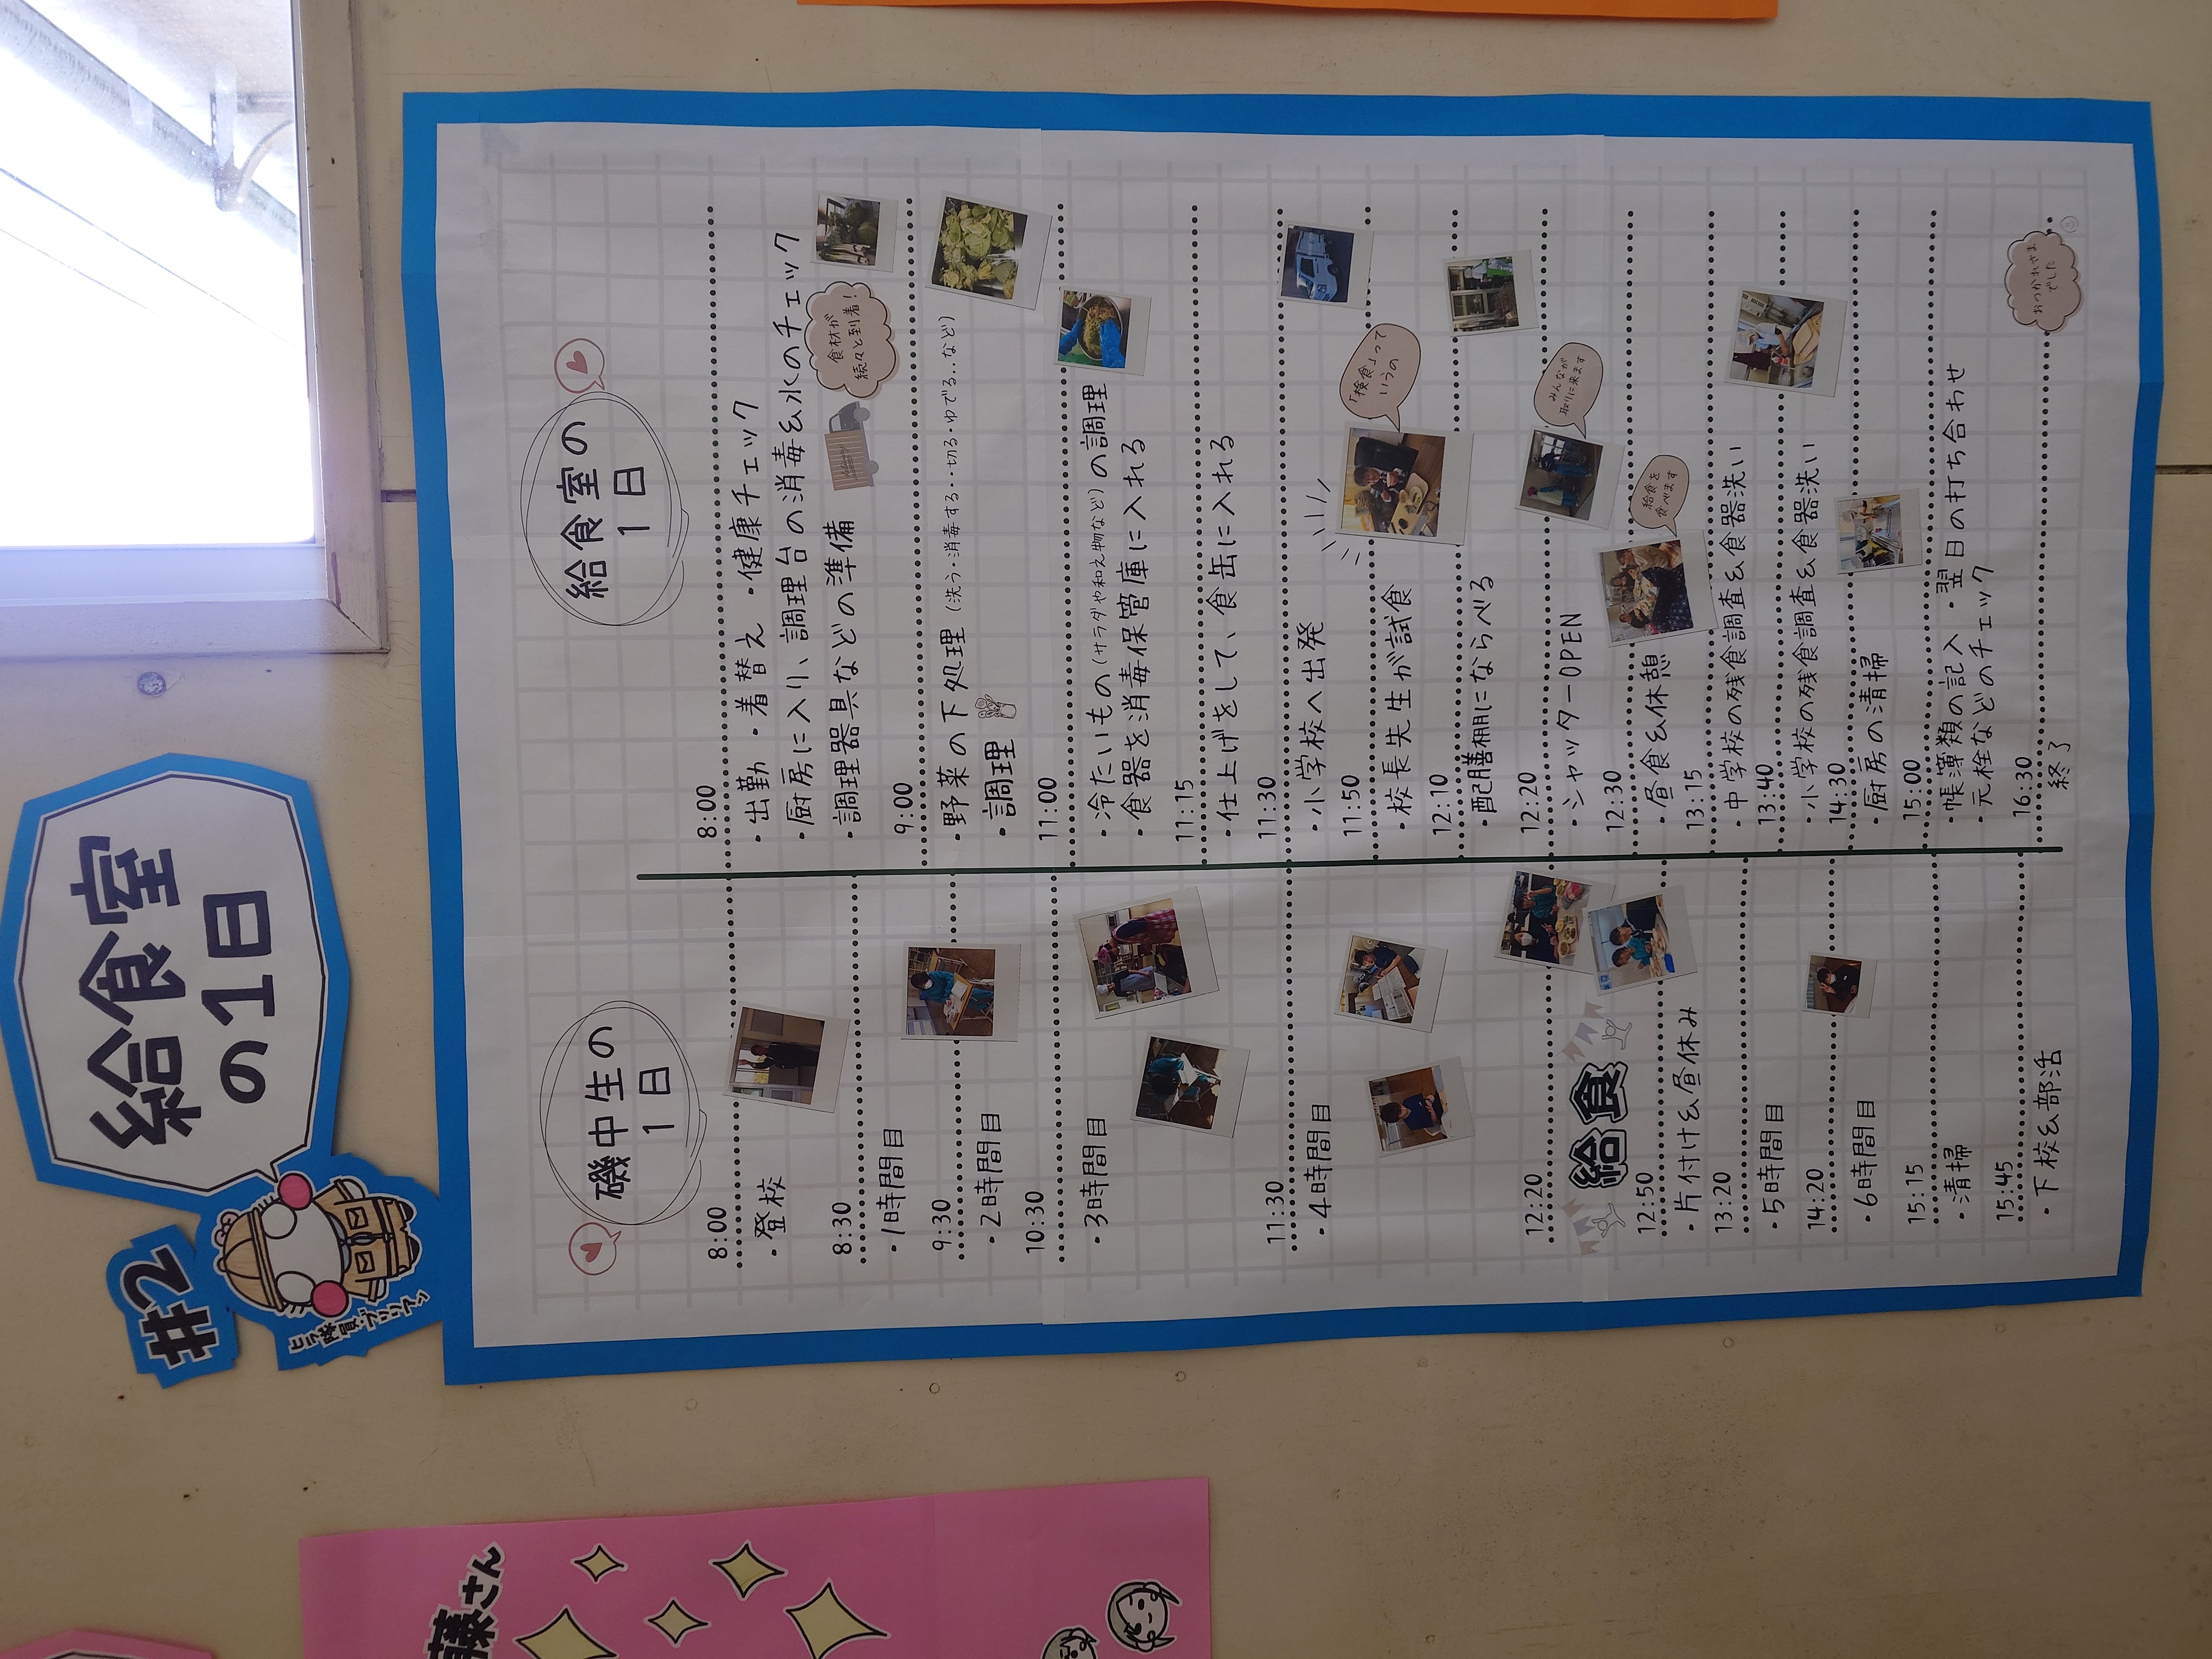 #2
ヒラ隊員・ブリリアン
給食室
の1日
磯中生の
1日
8:00
・登校
8:30
・1時間目
9:30
・2時間目
10:30
・3時間目
11:30
・4時間目
12:20
給食
12:50
・片付け&昼休み
13:20
・5時間目
14:20
・6時間目
15:15
・清掃
15:45
・下校&部活
給食室の
1日
8:00
・出勤・着替え・健康チェック
・厨房に入り、調理台の消毒&水のチェック
・調理器具などの準備
食材が
続々と到着!
9:00
・野菜の下処理(洗う・消毒する・切る・ゆでる..など)
・調理
11:00
・冷たいもの(サラダや和え物など)の調理
・食器を消毒保管庫に入れる
11:15
・仕上げをして、食缶に入れる
11:30
・小学校へ出発
11:50
・校長先生が試食
「検食」って
いうの
12:10
・配膳棚にならべる
12:20
・シャッターOPEN
みんなが
取りに来ます
12:30
・昼食&休憩
給食を
食べます
13:15
・中学校の残食調査&食器洗い
13:40
・小学校の残食調査&食器洗い
14:30
・厨房の清掃
15:00
・帳簿類の記入・翌日の打ち合わせ
・元栓などのチェック
16:30
終了
おつかれさま
でした
藤さん